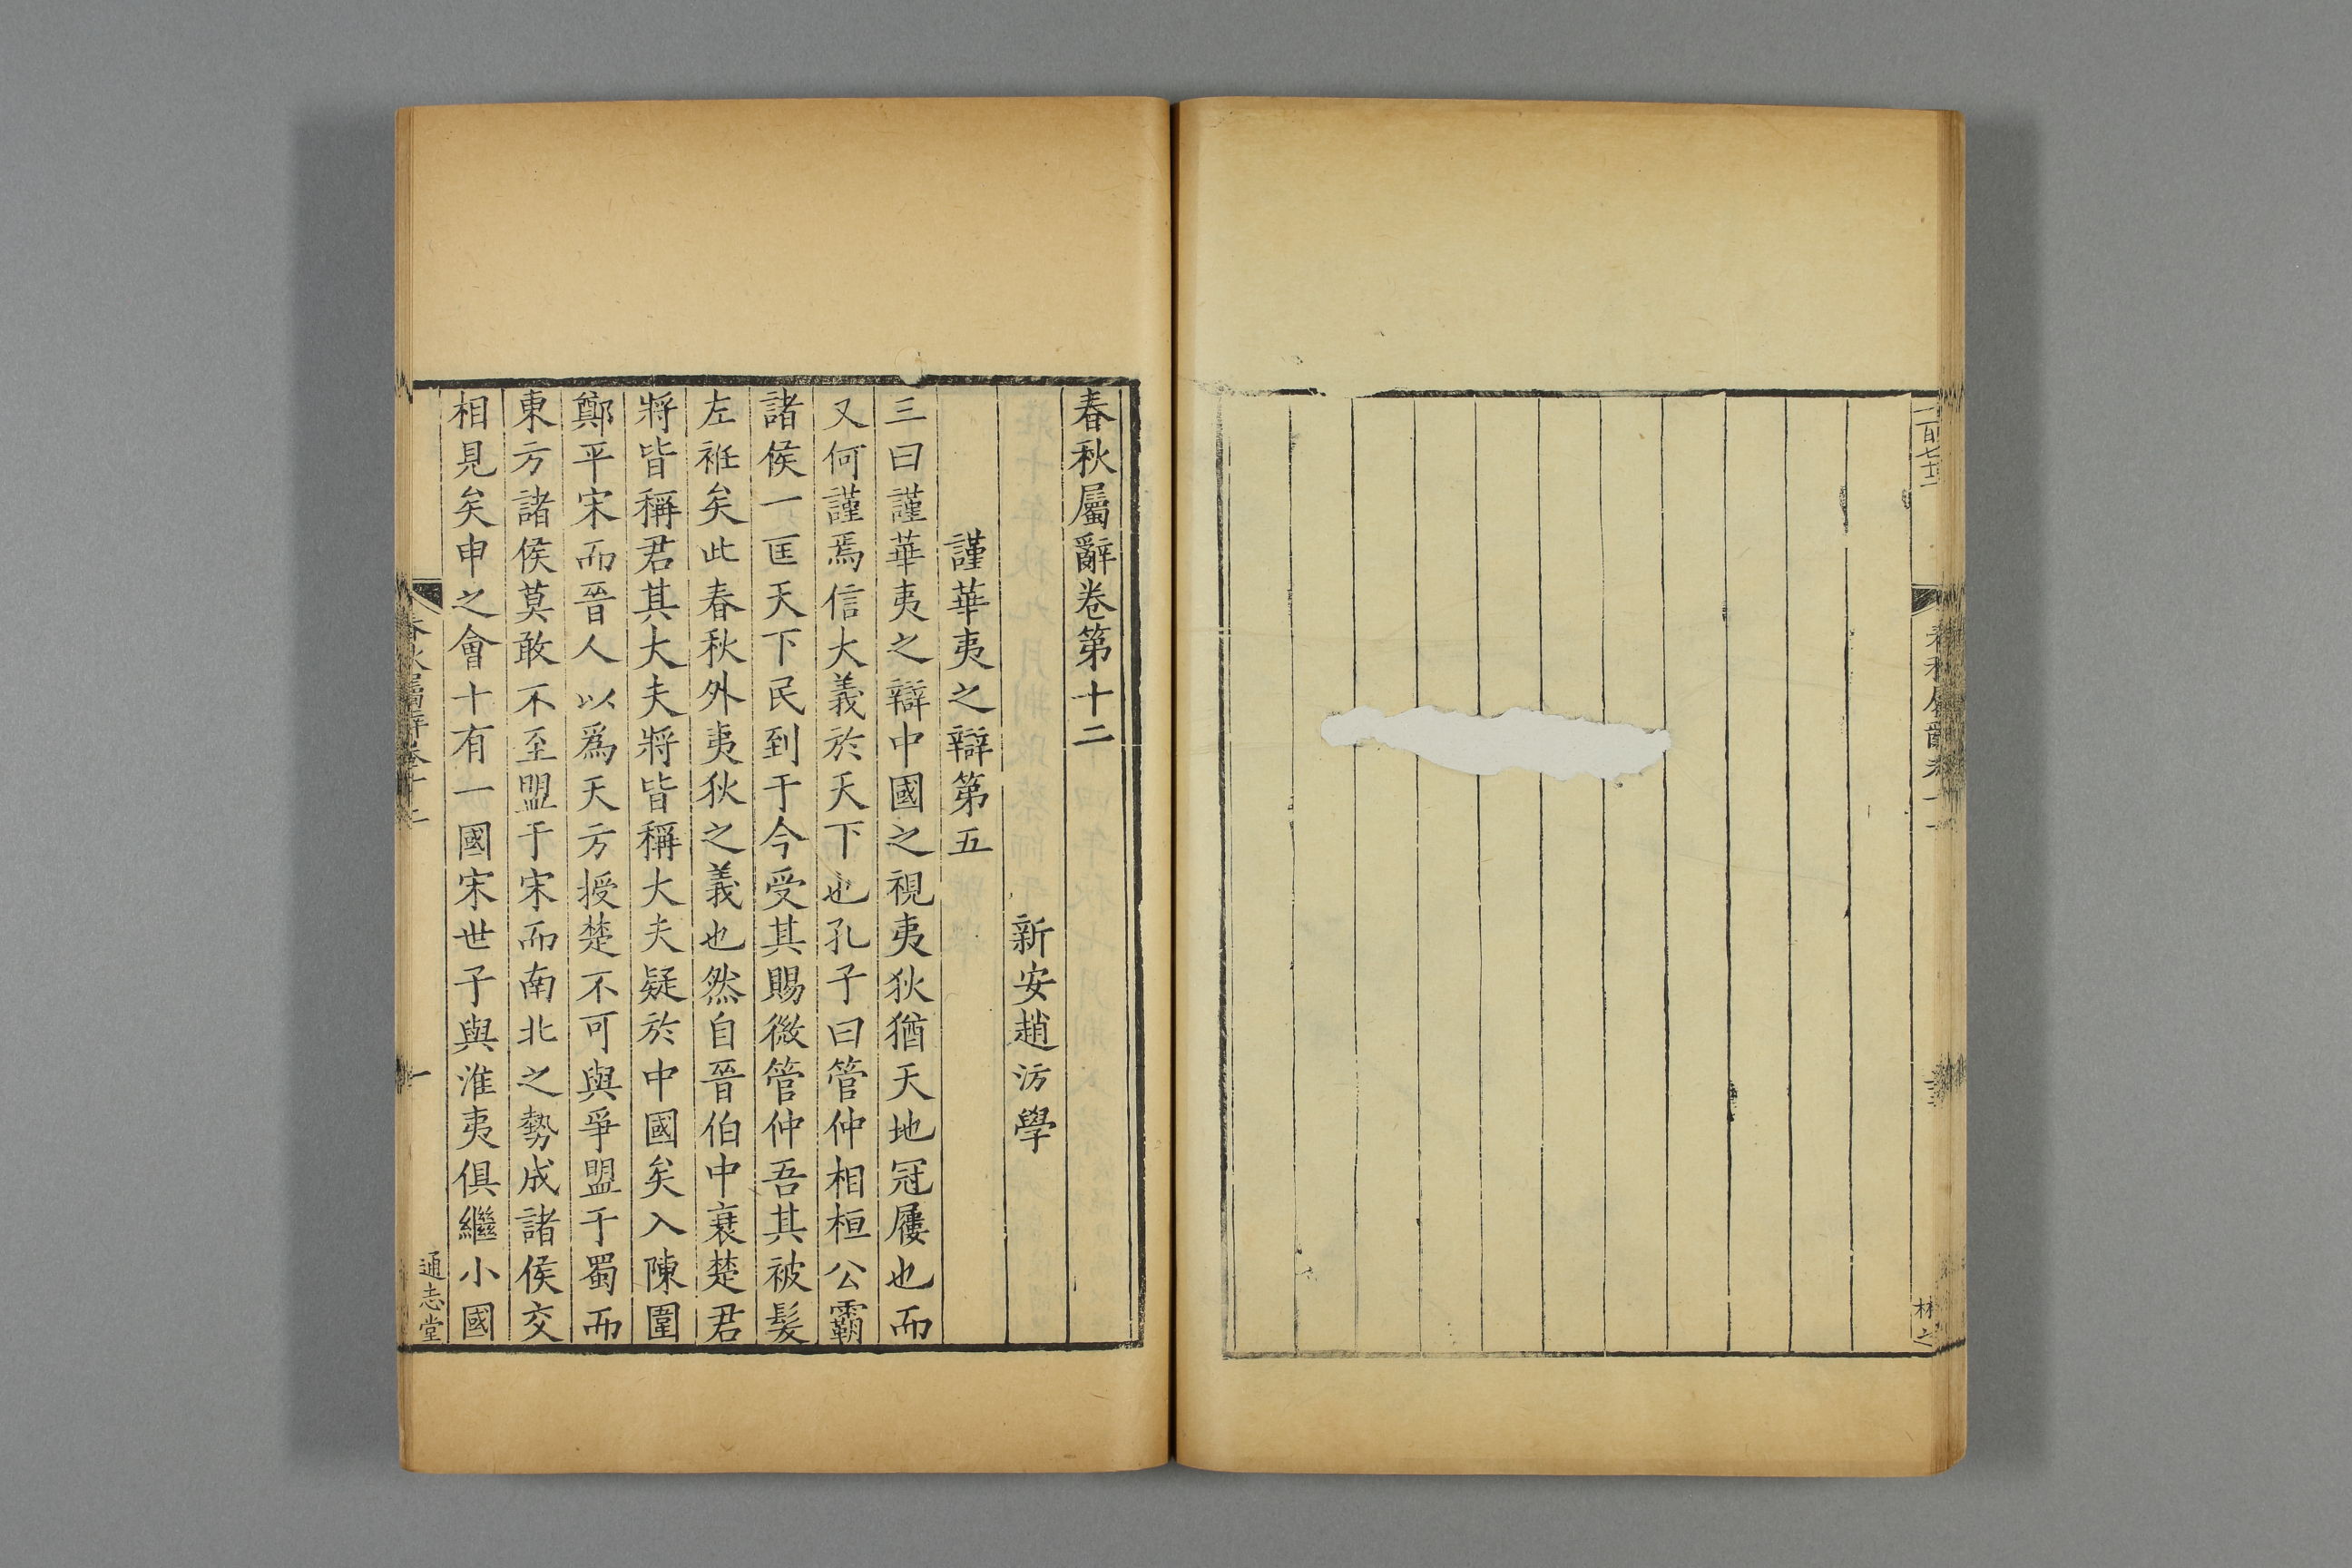 春秋屬辭卷第十二
新安趙汸學
謹華夷之辯第五
三曰謹華夷之辯中國之視夷狄猶天地冠屨也而
又何謹焉信大義於天下也孔子曰管仲相桓公霸
諸侯一匡天下民到于今受其賜微管仲吾其被髮
左衽矣此春秋外夷狄之義也然自晉伯中衰楚君
將皆稱君其大夫將皆稱大夫疑於中國矣入陳圍
鄭平宋而晉人以爲天方授楚不可與爭盟于蜀而
東方諸侯莫敢不至盟于宋而南北之勢成諸侯交
相見矣申之會十有一國宋世子與淮夷俱繼小國
春秋屬辭卷十二
一
通志堂